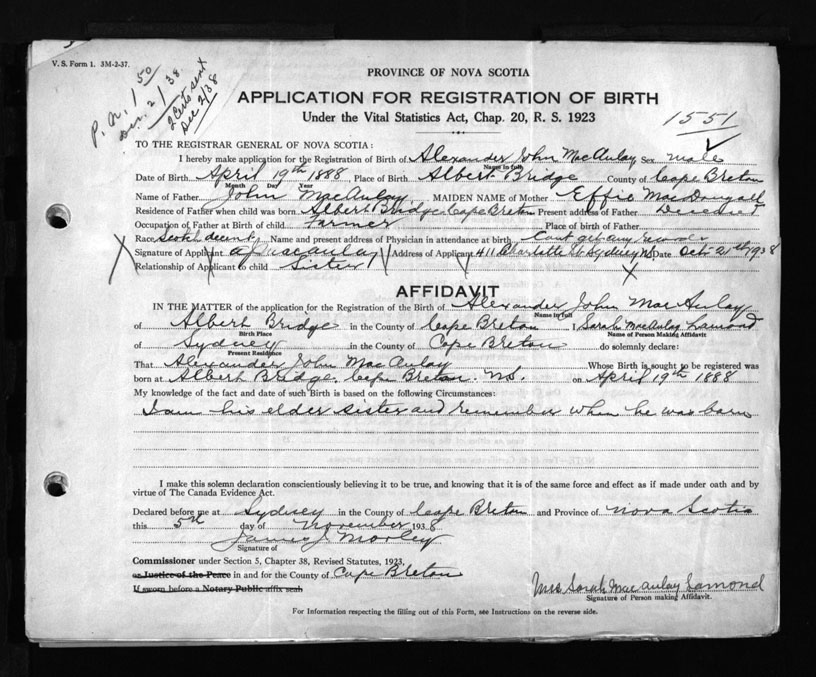 V. S. Form 1. 3M-2-37.
P. N. 1 50
Dec. 2/38
2 Certs sent
Dec 2/38
PROVINCE OF NOVA SCOTIA
APPLICATION FOR REGISTRATION OF BIRTH
Under the Vital Statistics Act, Chap. 20, R. S. 1923
1551
TO THE REGISTRAR GENERAL OF NOVA SCOTIA:
I hereby make application for the Registration of Birth of Alexander John MacAulay Sex male
Name in full
Date of Birth April 19th 1888 Place of Birth Albert Bridge County of Cape Breton
Month Day Year
Name of Father John MacAulay MAIDEN NAME of Mother Effie MacDougall
Residence of Father when child was born Albert Bridge, Cape Breton Present address of Father Deceased
Occupation of Father at Birth of child Farmer Place of birth of Father
Race Scotch decent Name and present address of Physician in attendance at birth Cant get any
Signature of Applicant MacAulay Address of Applicant 411 Charlotte St Sydney NS Date Oct. 21st 1938
Relationship of Applicant to child Sister
AFFIDAVIT
IN THE MATTER of the application for the Registration of the Birth of Alexander John MacAulay
Name in full
of Albert Bridge in the County of Cape Breton I Sarah MacAulay Lamond
Birth Place Name of Person Making Affidavit
of Sydney in the County of Cape Breton do solemnly declare:
Present Residence
That Alexander John MacAulay Whose Birth is sought to be registered was
born at Albert Bridge, Cape Breton. NS. on April 19th 1888
My knowledge of the fact and date of such Birth is based on the following Circumstances:
I am his elder sister and remember when he was born
I make this solemn declaration conscientiously believing it to be true, and knowing that it is of the same force and effect as if made under oath and by
virtue of The Canada Evidence Act.
Declared before me at Sydney in the County of Cape Breton and Province of Nova Scotia
this 5th day of November 1938
James J Morley
Signature of
Commissioner under Section 5, Chapter 38, Revised Statutes, 1923,
as Justice of the Peace in and for the County of Cape Breton
If sworn before a Notary Public affix seal
Mrs Sarah MacAulay Lamond
Signature of Person making Affidavit.
For Information respecting the filling out of this Form, see Instructions on the reverse side.